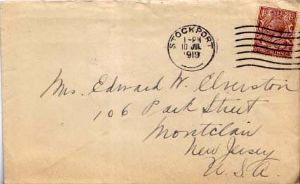 STOCKPORT
1 - PM
10 JUL
1919
Mrs. Edward W. Elverston
106 Park Street
Montclair
New Jersey
U.S.A.